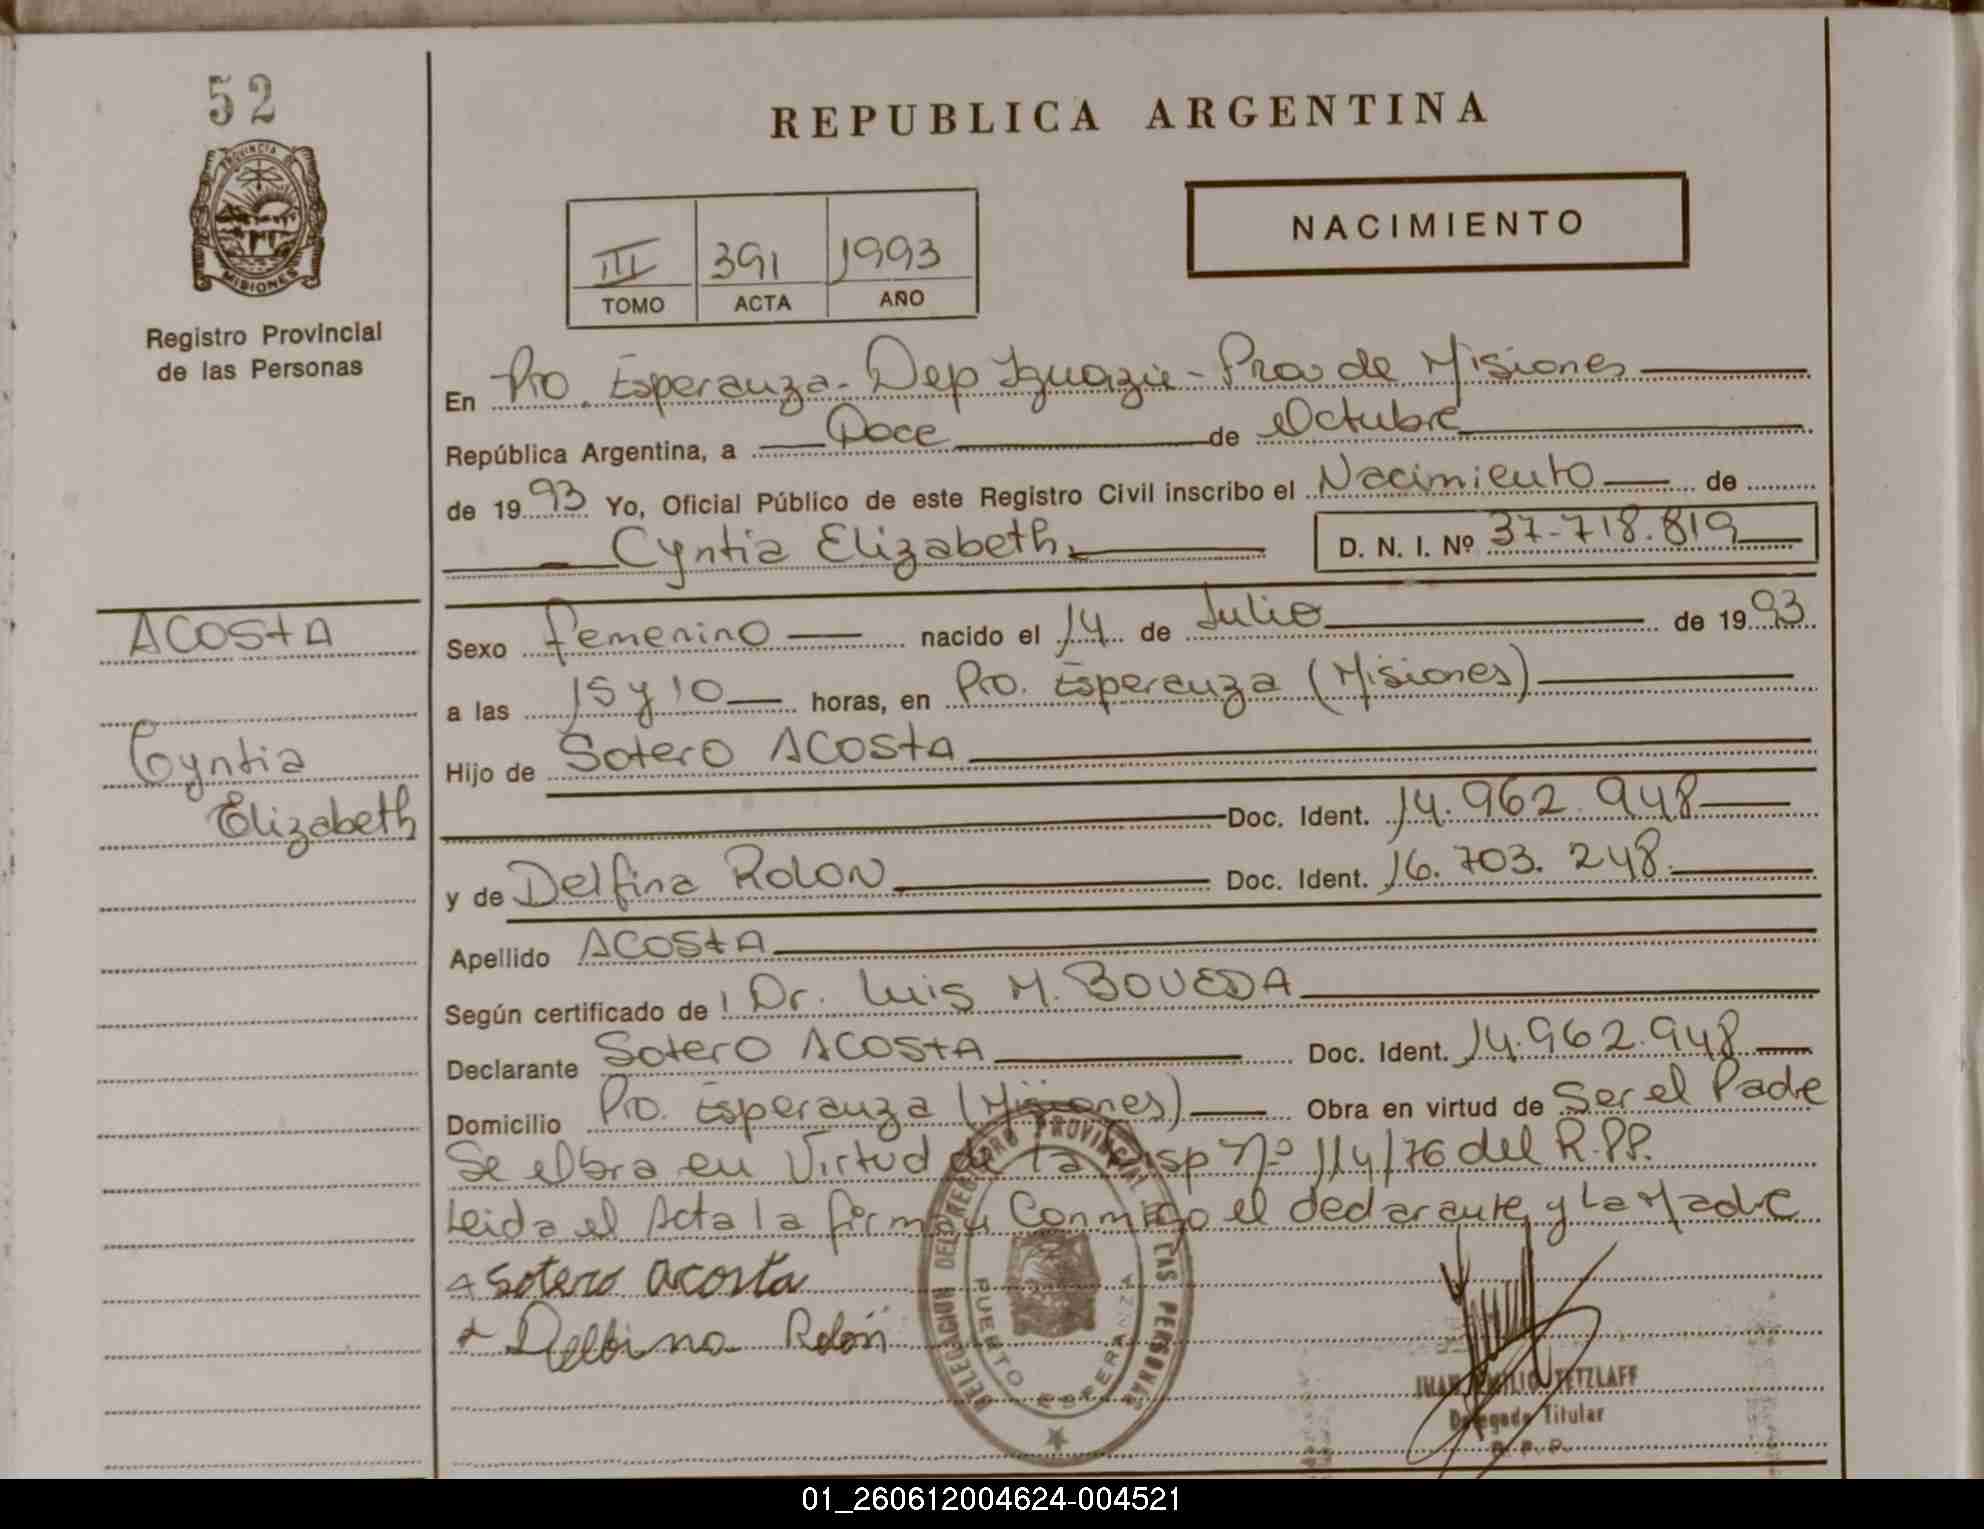 52
PROVINCIA DE
MISIONES
Registro Provincial
de las Personas
REPUBLICA ARGENTINA
NACIMIENTO
III 391 1993
TOMO ACTA AÑO
En Pto. Esperanza - Dep Iguazú - Prov de Misiones
República Argentina, a Doce de Octubre
de 1993 Yo, Oficial Público de este Registro Civil inscribo el Nacimiento de
Cyntia Elizabeth. D. N. I. Nº 37-718.819
ACOSTA
Cyntia
Elizabeth
Sexo femenino nacido el 14 de Julio de 1993
a las 15 y 10 horas, en Pto. Esperanza (Misiones)
Hijo de Sotero ACOSTA
Doc. Ident. 14.962.948
y de Delfina ROLON Doc. Ident. 16.703.248.
Apellido ACOSTA
Según certificado de Dr. Luis M. BOVEDA
Declarante Sotero ACOSTA Doc. Ident. 14.962.948
Domicilio Pto. Esperanza (Misiones) Obra en virtud de Ser el Padre
Se elbra en Virtud de la Disp Nº 114/76 del R.PP.
Leida el Acta la firman Conmigo el declarante y La Madre
Sotero acosta
Delbina Rolón
DELEGACION DEL REGISTRO PROVINCIAL DE LAS PERSONAS
PUERTO ESPERANZA
JUAN EMILIO TETZLAFF
Delegado Titular
R. P. P.
01_260612004624-004521